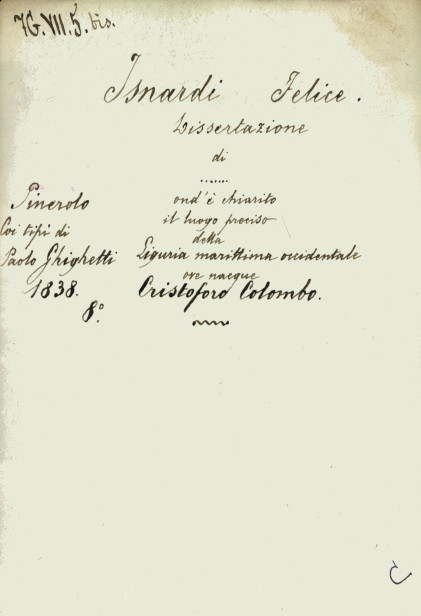 7G.VII.5.bis.
Isnardi Felice.
Dissertazione
di
.......
ond'è chiarito
il luogo preciso
della
Liguria marittima occidentale
ove nacque
Cristoforo Colombo.
Pinerolo
Coi tipi di
Paolo Ghighetti
1838.
8°.